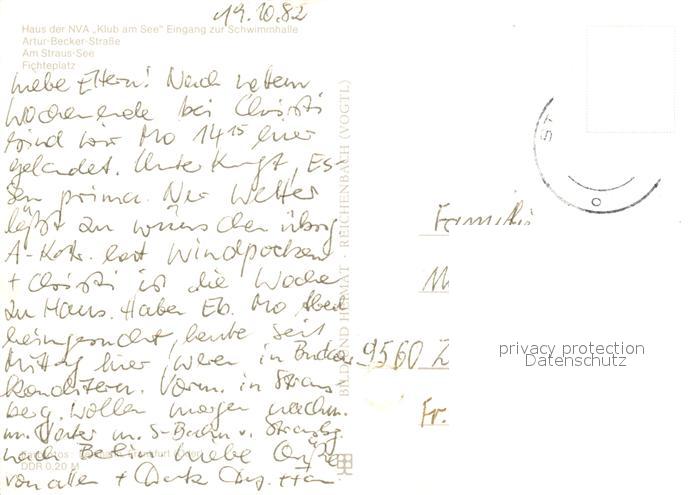 19.10.82
Haus der NVA „Klub am See" Eingang zur Schwimmhalle
Artur-Becker-Straße
Am Straus-See
Fichteplatz
Liebe Eltern! Nach nettem
Wochenende bei Christi
sind wir Mo 14¹⁵ hier
gelandet. Unterkunft, Es-
sen prima. Nur Wetter
läßt zu wünschen übrig
A-Kath. hat Windpocken
+ Christi ist die Woche
zu Haus. Haben Eb. Mo Abend
heimgesucht, heute seit
Mittag hier, waren in
Konditorei. Vorm. in Straus
berg. Wollen morgen nachm.
m. S-Bahn v. Strausbg.
nach Berlin. Liebe Grüße
von allen + Dank
DDR 0,20 M
BILD UND HEIMAT · REICHENBACH (VOGTL)
Familie
M
9560 Z
Fr.
privacy protection
Datenschutz